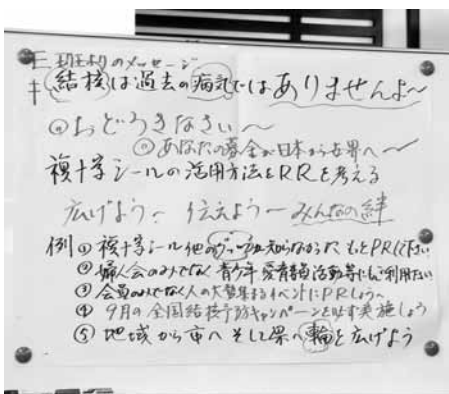 E班よりのメッセージ
キ 結核は過去の病気ではありませんよ〜
◎おどろきなさい〜
◎あなたの募金が日本から世界へ〜
複十字シールの活用方法をPRを考える
広げよう〜 伝えよう〜 みんなの絆
例 ① 複十字シール他のグッズを知らなかった もっとPRして下さい
② 婦人会のみでなく 青少年 愛育委員活動等にもご利用したい
③ 会員のみでなく人の大勢集まるイベントにPRしよう
④ 9月の全国結核予防キャンペーンを必ず実施しよう
⑤ 地域から市へ そして県へ輪を広げよう